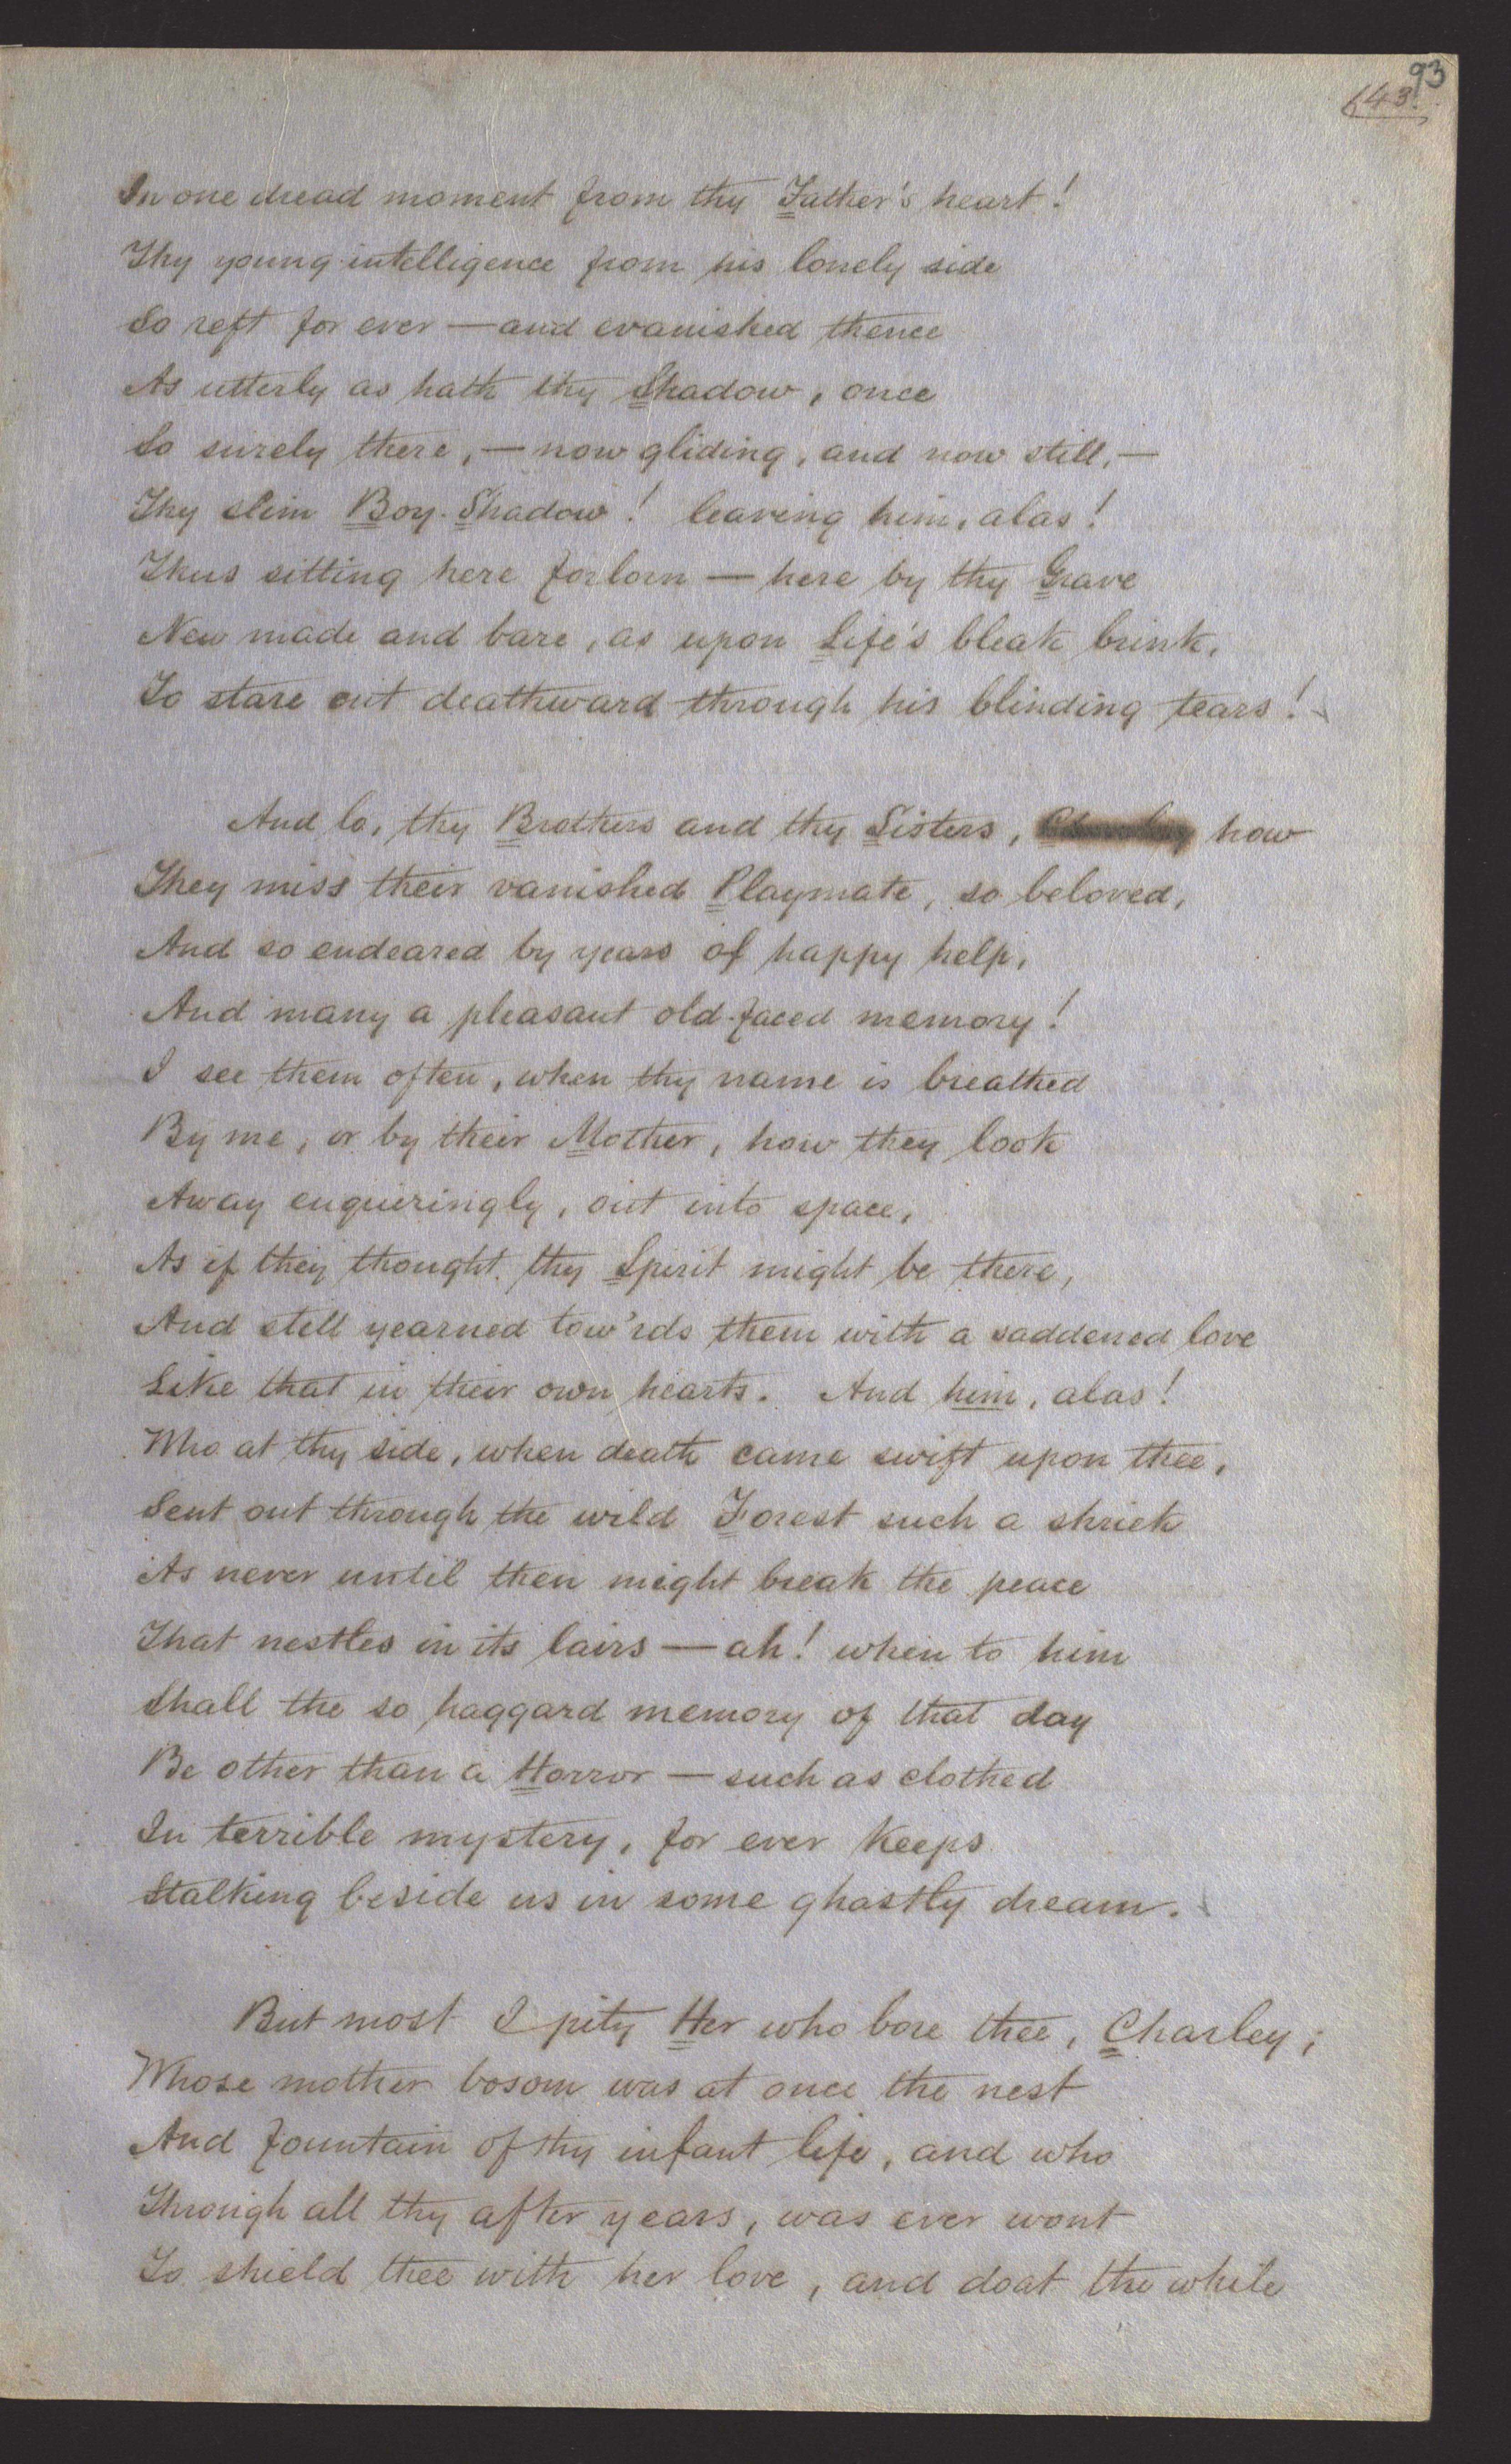 93
643.
In one dread moment from thy Father's heart!
Thy young intelligence from his lonely side
So reft for ever — and evanished thence
As utterly as hath thy Shadow, once
So surely there, — now gliding, and now still, —
Thy slim Boy-Shadow! leaving him, alas!
Thus sitting here forlorn — here by thy Grave
New made and bare, as upon Life's bleak brink,
To stare out deathward through his blinding tears!
And lo, thy Brothers and thy Sisters, how
They miss their vanished Playmate, so beloved,
And so endeared by years of happy help,
And many a pleasant old-faced memory!
I see them often, when thy name is breathed
By me, or by their Mother, how they look
Away enquiringly, out into space,
As if they thought thy Spirit might be there,
And still yearned tow'rds them with a saddened love
Like that in their own hearts. And him, alas!
Who at thy side, when death came swift upon thee,
Sent out through the wild Forest such a shriek
As never until then might break the peace
That nestles in its lairs — ah! when to him
Shall the so haggard memory of that day
Be other than a Horror — such as clothed
In terrible mystery, for ever keeps
Stalking beside us in some ghastly dream.
But most I pity Her who bore thee, Charley;
Whose mother bosom was at once the nest
And fountain of thy infant life, and who
Through all thy after years, was ever wont
To shield thee with her love, and doat the while